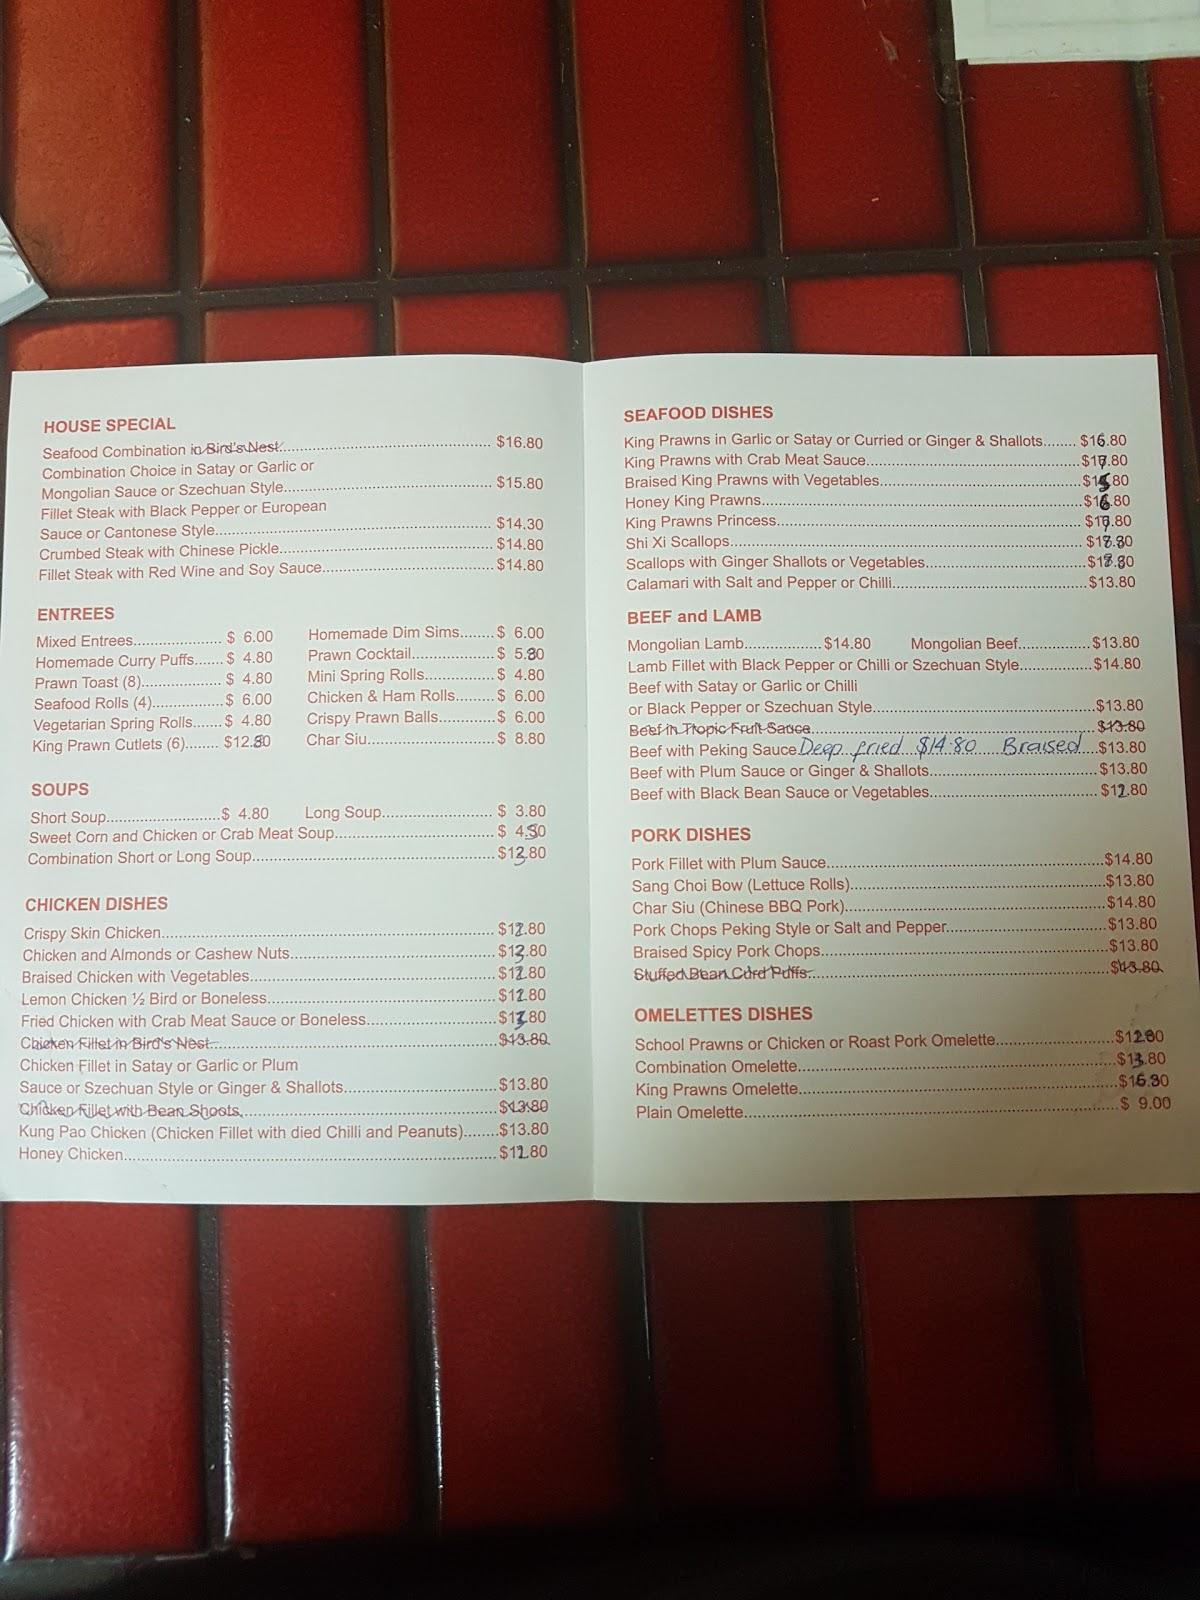 HOUSE SPECIAL
Seafood Combination in Bird's Nest $16.80
Combination Choice in Satay or Garlic or
Mongolian Sauce or Szechuan Style $15.80
Fillet Steak with Black Pepper or European
Sauce or Cantonese Style $14.30
Crumbed Steak with Chinese Pickle $14.80
Fillet Steak with Red Wine and Soy Sauce $14.80
ENTREES
Mixed Entrees $ 6.00 Homemade Dim Sims $ 6.00
Homemade Curry Puffs $ 4.80 Prawn Cocktail $ 5.80
Prawn Toast (8) $ 4.80 Mini Spring Rolls $ 4.80
Seafood Rolls (4) $ 6.00 Chicken & Ham Rolls $ 6.00
Vegetarian Spring Rolls $ 4.80 Crispy Prawn Balls $ 6.00
King Prawn Cutlets (6) $12.80 Char Siu $ 8.80
SOUPS
Short Soup $ 4.80 Long Soup $ 3.80
Sweet Corn and Chicken or Crab Meat Soup
Combination Short or Long Soup $13.80
CHICKEN DISHES
Crispy Skin Chicken $12.80
Chicken and Almonds or Cashew Nuts $13.80
Braised Chicken with Vegetables $12.80
Lemon Chicken ½ Bird or Boneless $12.80
Fried Chicken with Crab Meat Sauce or Boneless $13.80
Chicken Fillet in Bird's Nest $13.80
Chicken Fillet in Satay or Garlic or Plum
Sauce or Szechuan Style or Ginger & Shallots $13.80
Chicken Fillet with Bean Shoots $13.80
Kung Pao Chicken (Chicken Fillet with died Chilli and Peanuts) $13.80
Honey Chicken $12.80
SEAFOOD DISHES
King Prawns in Garlic or Satay or Curried or Ginger & Shallots $16.80
King Prawns with Crab Meat Sauce $17.80
Braised King Prawns with Vegetables $15.80
Honey King Prawns $16.80
King Prawns Princess $17.80
Shi Xi Scallops
Scallops with Ginger Shallots or Vegetables
Calamari with Salt and Pepper or Chilli $13.80
BEEF and LAMB
Mongolian Lamb $14.80 Mongolian Beef $13.80
Lamb Fillet with Black Pepper or Chilli or Szechuan Style $14.80
Beef with Satay or Garlic or Chilli
or Black Pepper or Szechuan Style $13.80
Beef in Tropic Fruit Sauce $13.80
Beef with Peking Sauce Deep fried $14.80 Braised $13.80
Beef with Plum Sauce or Ginger & Shallots $13.80
Beef with Black Bean Sauce or Vegetables $12.80
PORK DISHES
Pork Fillet with Plum Sauce $14.80
Sang Choi Bow (Lettuce Rolls) $13.80
Char Siu (Chinese BBQ Pork) $14.80
Pork Chops Peking Style or Salt and Pepper $13.80
Braised Spicy Pork Chops $13.80
Stuffed Bean Curd Puffs $13.80
OMELETTES DISHES
School Prawns or Chicken or Roast Pork Omelette $12.80
Combination Omelette $13.80
King Prawns Omelette
Plain Omelette $ 9.00